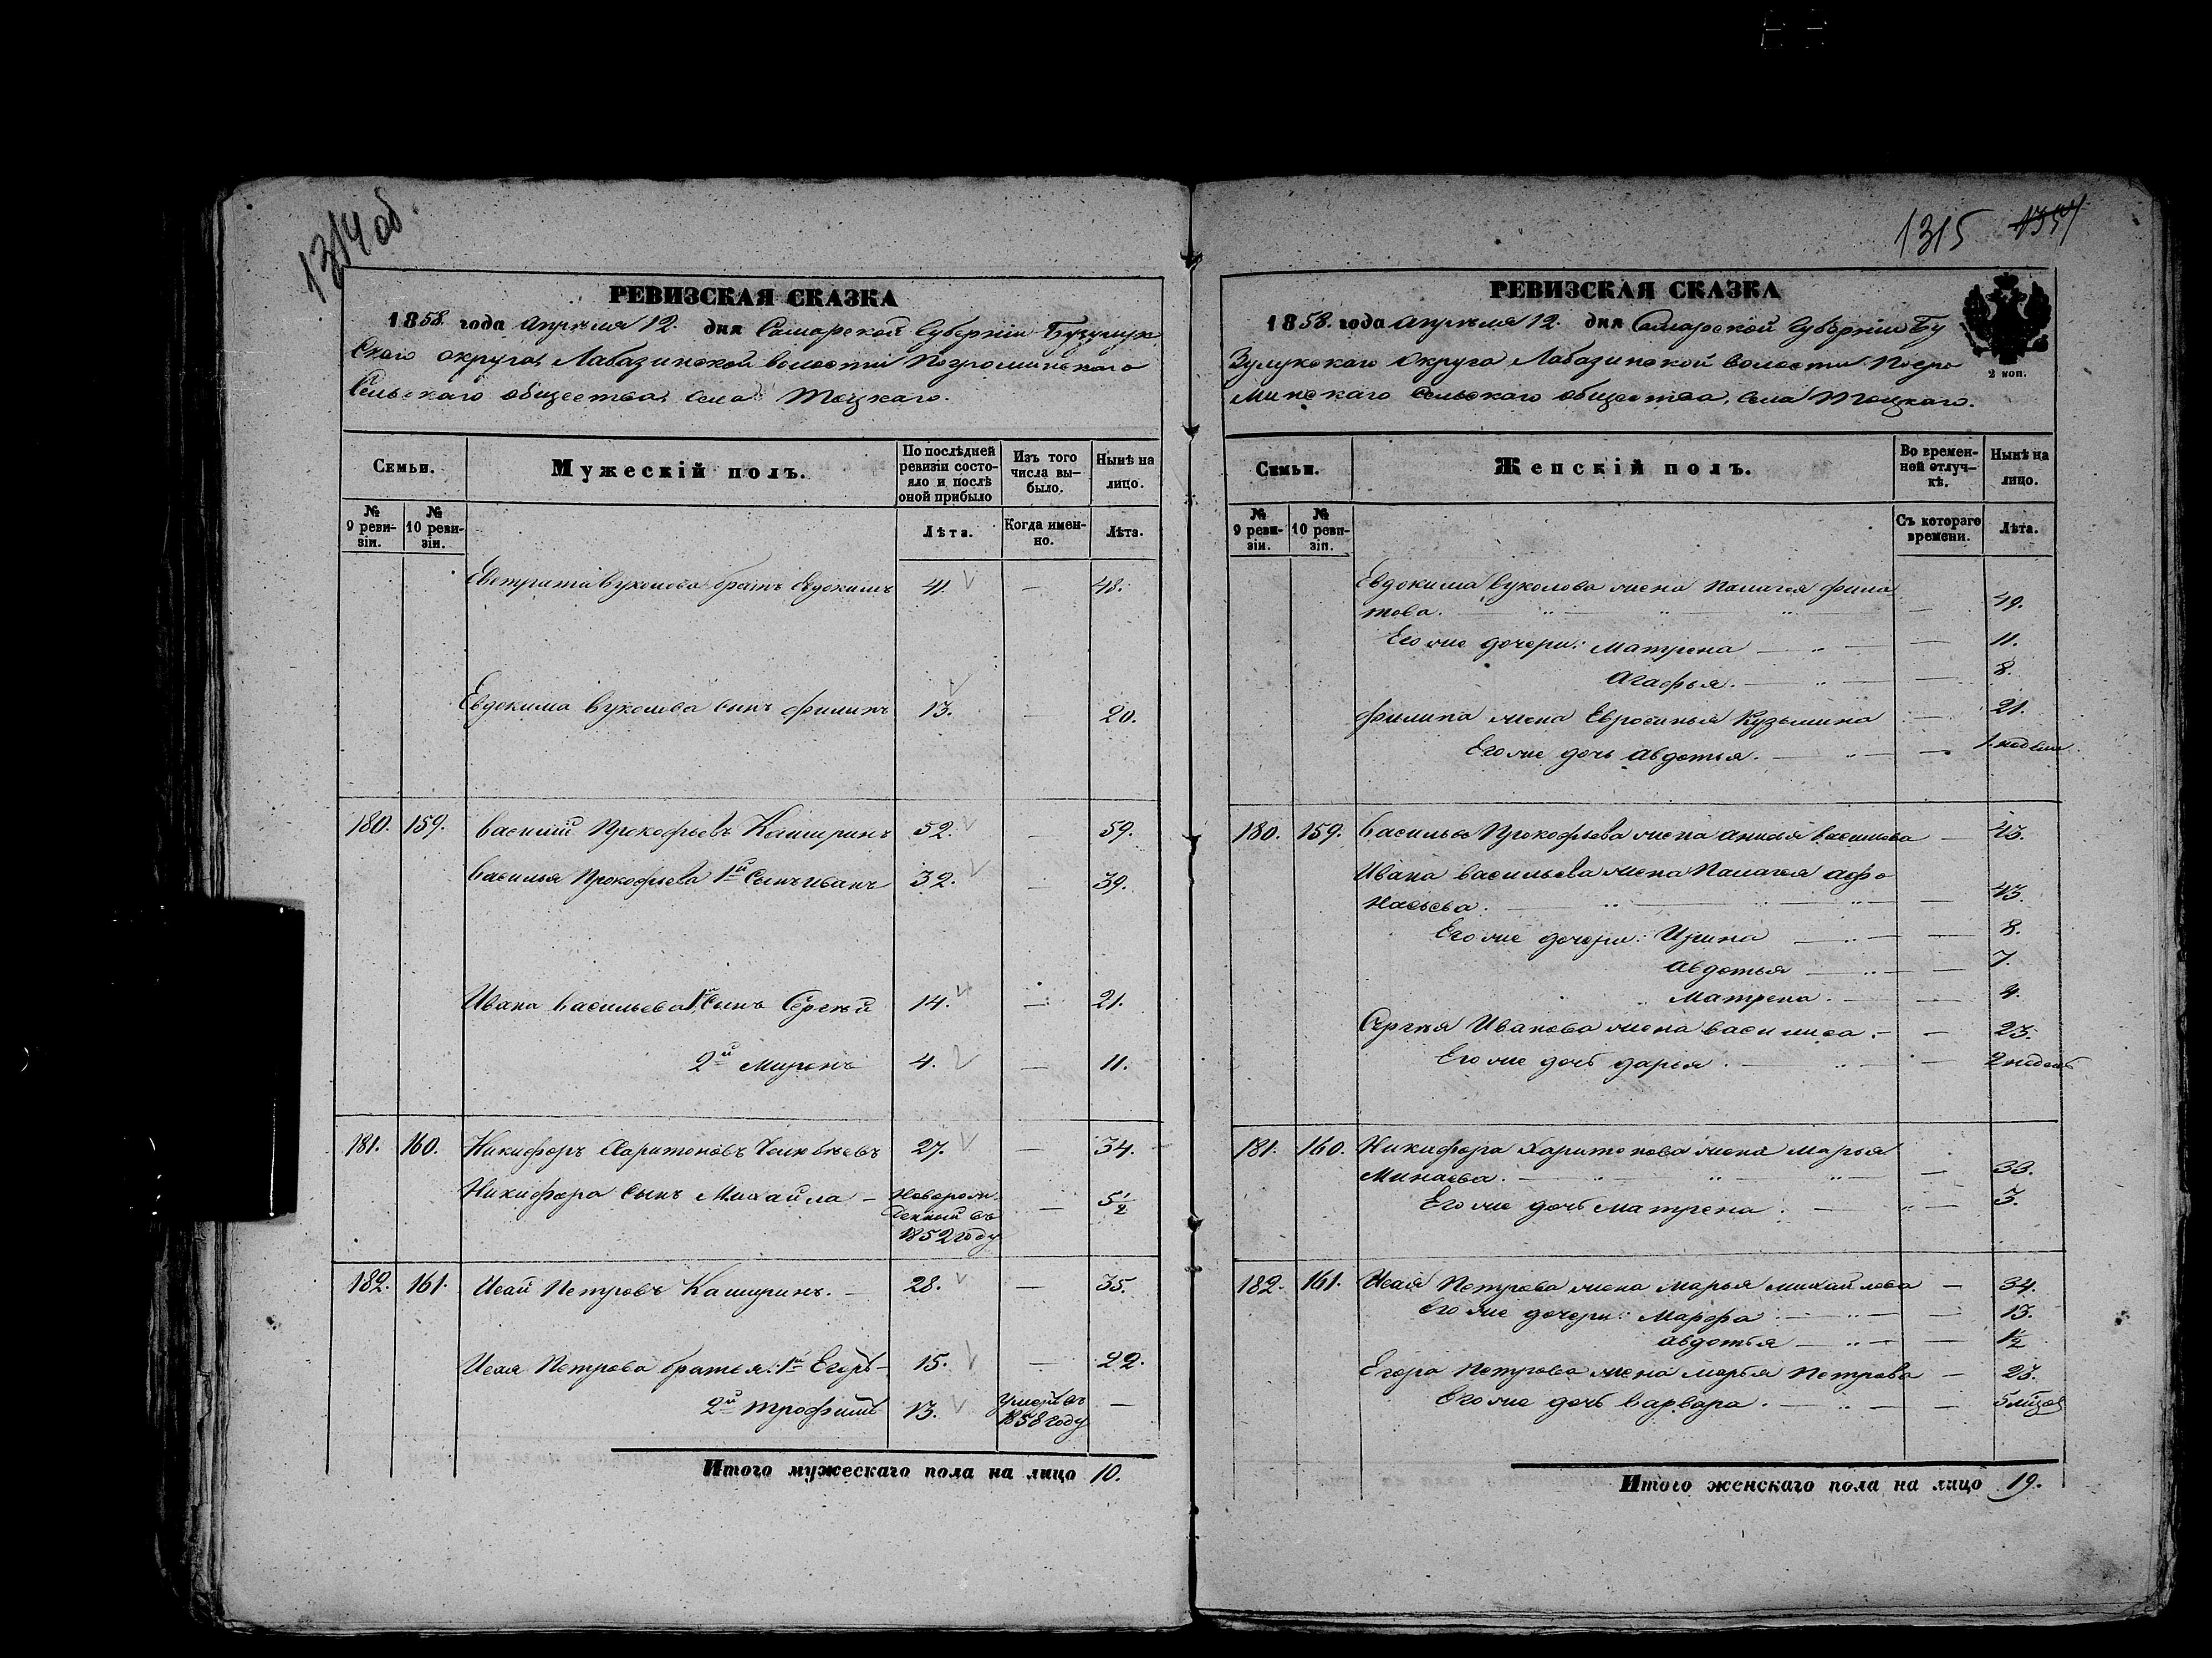 1314 об.
РЕВИЗСКАЯ СКАЗКА
1858. года Апрѣля 12. дня Самарской Губерніи Бузулук
скаго округа, Лабазинской волости Погроминскаго
Сельскаго общества, села Тоцкаго.
Семьи. Мужескій полъ. По послѣдней ревизіи состояло и послѣ оной прибыло Изъ того числа выбыло. Нынѣ на лицо.
№ 9 ревизіи. № 10 ревизіи. Лѣта. Когда именно. Лѣта.
Евстрата Вуколова братъ Евдокимъ 41. — 48.
Евдокима Вуколова сынъ Филипъ 13. — 20.
180. 159. Василий Прокофьевъ Каширинъ 52. — 59.
Василья Прокофьева 1й сынъ Иванъ 32. — 39.
Ивана Васильева 1й сынъ Сергѣй 14. — 21.
2й Миронъ 4. — 11.
181. 160. Никифоръ Харитоновъ 27. — 34.
Никифора сынъ Михайла — Новорож
денный въ — 5½
1852 году
182. 161. Исай Петровъ Каширинъ. — 28. — 35.
Исая Петрова братья: 1й Егоръ — 15. — 22.
2й Трофимъ 13. Умеръ въ —
1858 году
Итого мужескаго пола на лицо 10.
1315 1354
РЕВИЗСКАЯ СКАЗКА
1858. года Апрѣля 12. дня Самарской Губерніи Бу
зулукскаго Округа Лабазинской волости Погро
минскаго Сельскаго общества, села Тоцкаго.
2 коп.
Семьи. Женскій полъ. Во временной отлучкѣ. Нынѣ на лицо.
№ 9 ревизіи. № 10 ревизіи. Съ котораго времени. Лѣта.
Евдокима Вуколова жена Палагея Фила
това. — 49.
Его же дочери: Матрена — 11.
Агафья. — 8.
Филипа жена Евросинья Кузьмина — 21.
Его же дочь Авдотья. — 1 недели.
180. 159. Василья Прокофьева жена Васильева — 43.
Ивана Васильева жена Палагея Афо
насьева. — 43.
Его же дочери: Ирина — 8.
Авдотья — 7.
Матрена. — 4.
Сергѣя Иванова жена Василиса. — 23.
Его же дочь Дарья. — 2 недель
181. 160. Никифора Харитонова жена Марья
Минаева. — 33.
Его же дочь Матрена. — 3.
182. 161. Исая Петрова жена Марья Михайлова — 34.
Его же дочери: Марфа — 13.
Авдотья — 1½
Егора Петрова жена Марья Петрова — 23.
Его же дочь Варвара. — 5 мѣцов
Итого женскаго пола на лицо 19.